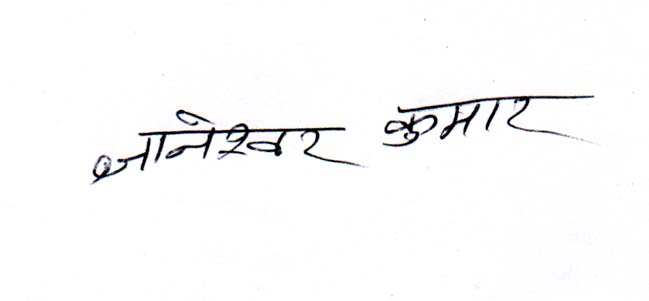 ज्ञानेश्वर कुमार